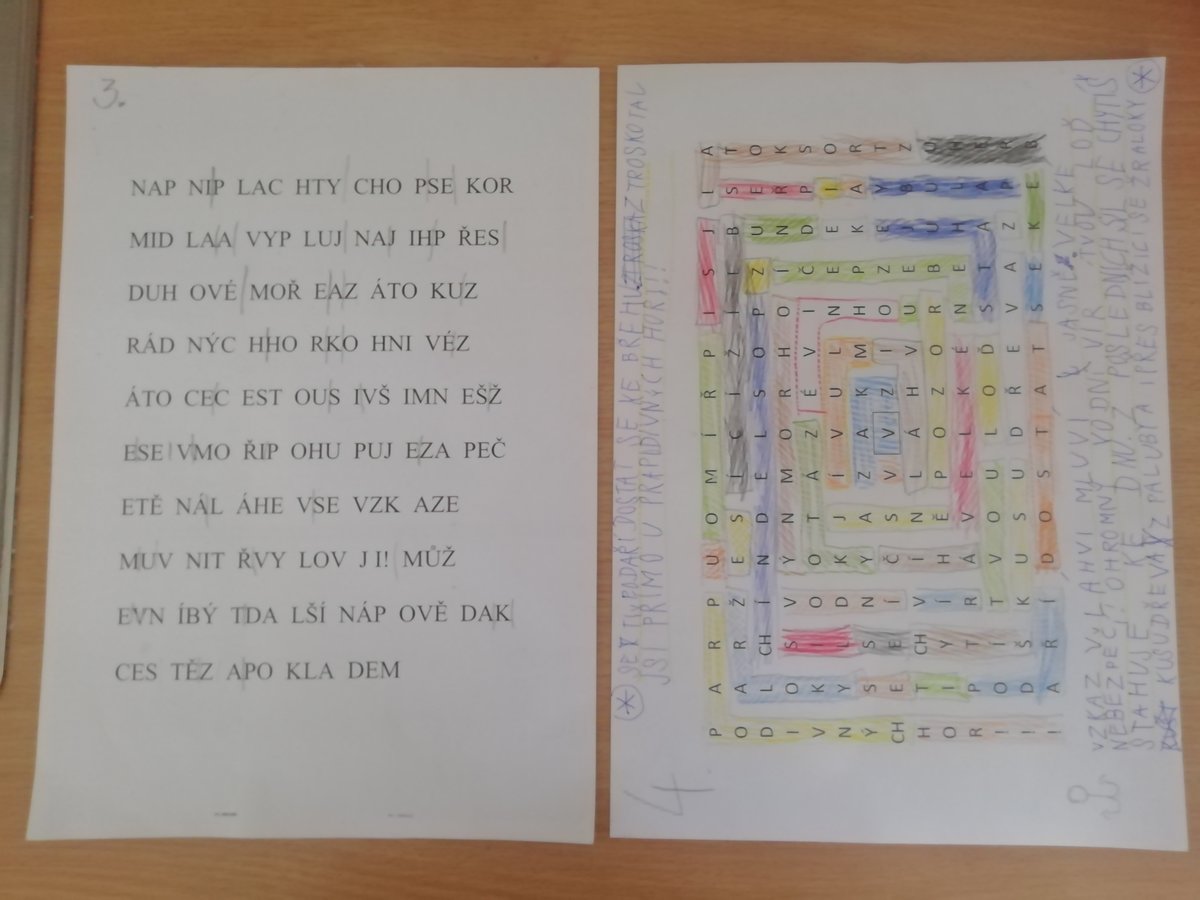 3.
NAP NIP LAC HTY CHO PSE KOR
MID LAA VYP LUJ NAJ IHP ŘES
DUH OVÉ MOŘ EAZ ÁTO KUZ
RÁD NÝC HHO RKO HNI VÉZ
ÁTO CEC EST OUS IVŠ IMN EŠŽ
ESE VMO ŘIP OHU PUJ EZA PEČ
ETĚ NÁL ÁHE VSE VZK AZE
MUV NIT ŘVY LOV J I! MŮŽ
EVN ÍBÝ TDA LŠÍ NÁP OVĚ DAK
CES TĚZ APO KLA DEM
4
SE TI PODAŘÍ DOSTAT SE KE BŘEHU ZTROSKOTAL
JSI PŘÍMO U PRAPODIVNÝCH HOR!!!
P A R P U O M Í Ř P I S J I A
O A R Ž E S Í C Í Ž Í L B S T
D L CH Í N D E L S O P Z U E O
I O S V Y N M O R H O Í N Ř K
V K I O O T Á Z É V I Č D P S
N Y L D K J Í V U L N E E I O
Ý S S N Y A Z A K M H P K A R
CH E E Í Č S V V Z I O Z E Y T
H T CH V Í N L Á H V U E J B Z
O I Y Í H Ě P O Z O R B U U O
R P T R Á V E L K É N E H L H
! O Í T V O U L O Ď S T A A E
! D Š K U S U D Ř E V A Z P R
! A Ř Í D O S T A T S E K E B
VZKAZ V LÁHVI MLUVÍ JASNĚ VELKÉ
NEBEZPEČÍ OHROMNÝ VODNÍ VÍR TVOU LOĎ
STAHUJE KE DNU. Z POSLEDNÍCH SIL SE CHYTÍŠ
KUSU DŘEVA Z PALUBY A I PŘES BLÍŽÍCÍ SE ŽRALOKY